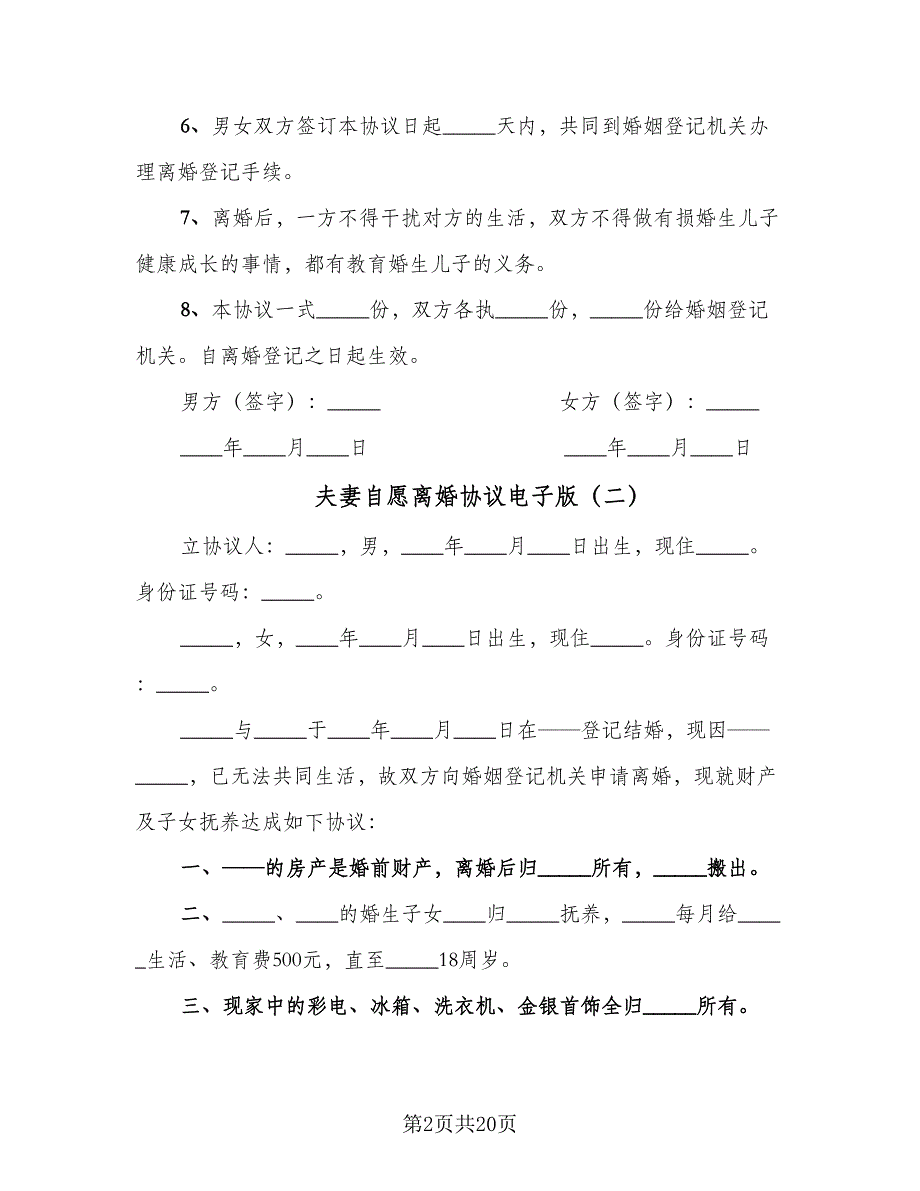 6、男女双方签订本协议日起_____天内，共同到婚姻登记机关办
理离婚登记手续。
7、离婚后，一方不得干扰对方的生活，双方不得做有损婚生儿子
健康成长的事情，都有教育婚生儿子的义务。
8、本协议一式_____份，双方各执_____份，_____份给婚姻登记
机关。自离婚登记之日起生效。
男方（签字）：_____ 女方（签字）：_____
____年____月____日 ____年____月____日
夫妻自愿离婚协议电子版（二）
立协议人：_____，男，____年____月____日出生，现住_____。
身份证号码：_____。
_____，女，____年____月____日出生，现住_____。身份证号码
：_____。
_____与_____于____年____月____日在——登记结婚，现因——
_____，已无法共同生活，故双方向婚姻登记机关申请离婚，现就财产
及子女抚养达成如下协议：
一、——的房产是婚前财产，离婚后归_____所有，_____搬出。
二、_____、____的婚生子女____归_____抚养，_____每月给____
_生活、教育费500元，直至_____18周岁。
三、现家中的彩电、冰箱、洗衣机、金银首饰全归_____所有。
第2页共20页